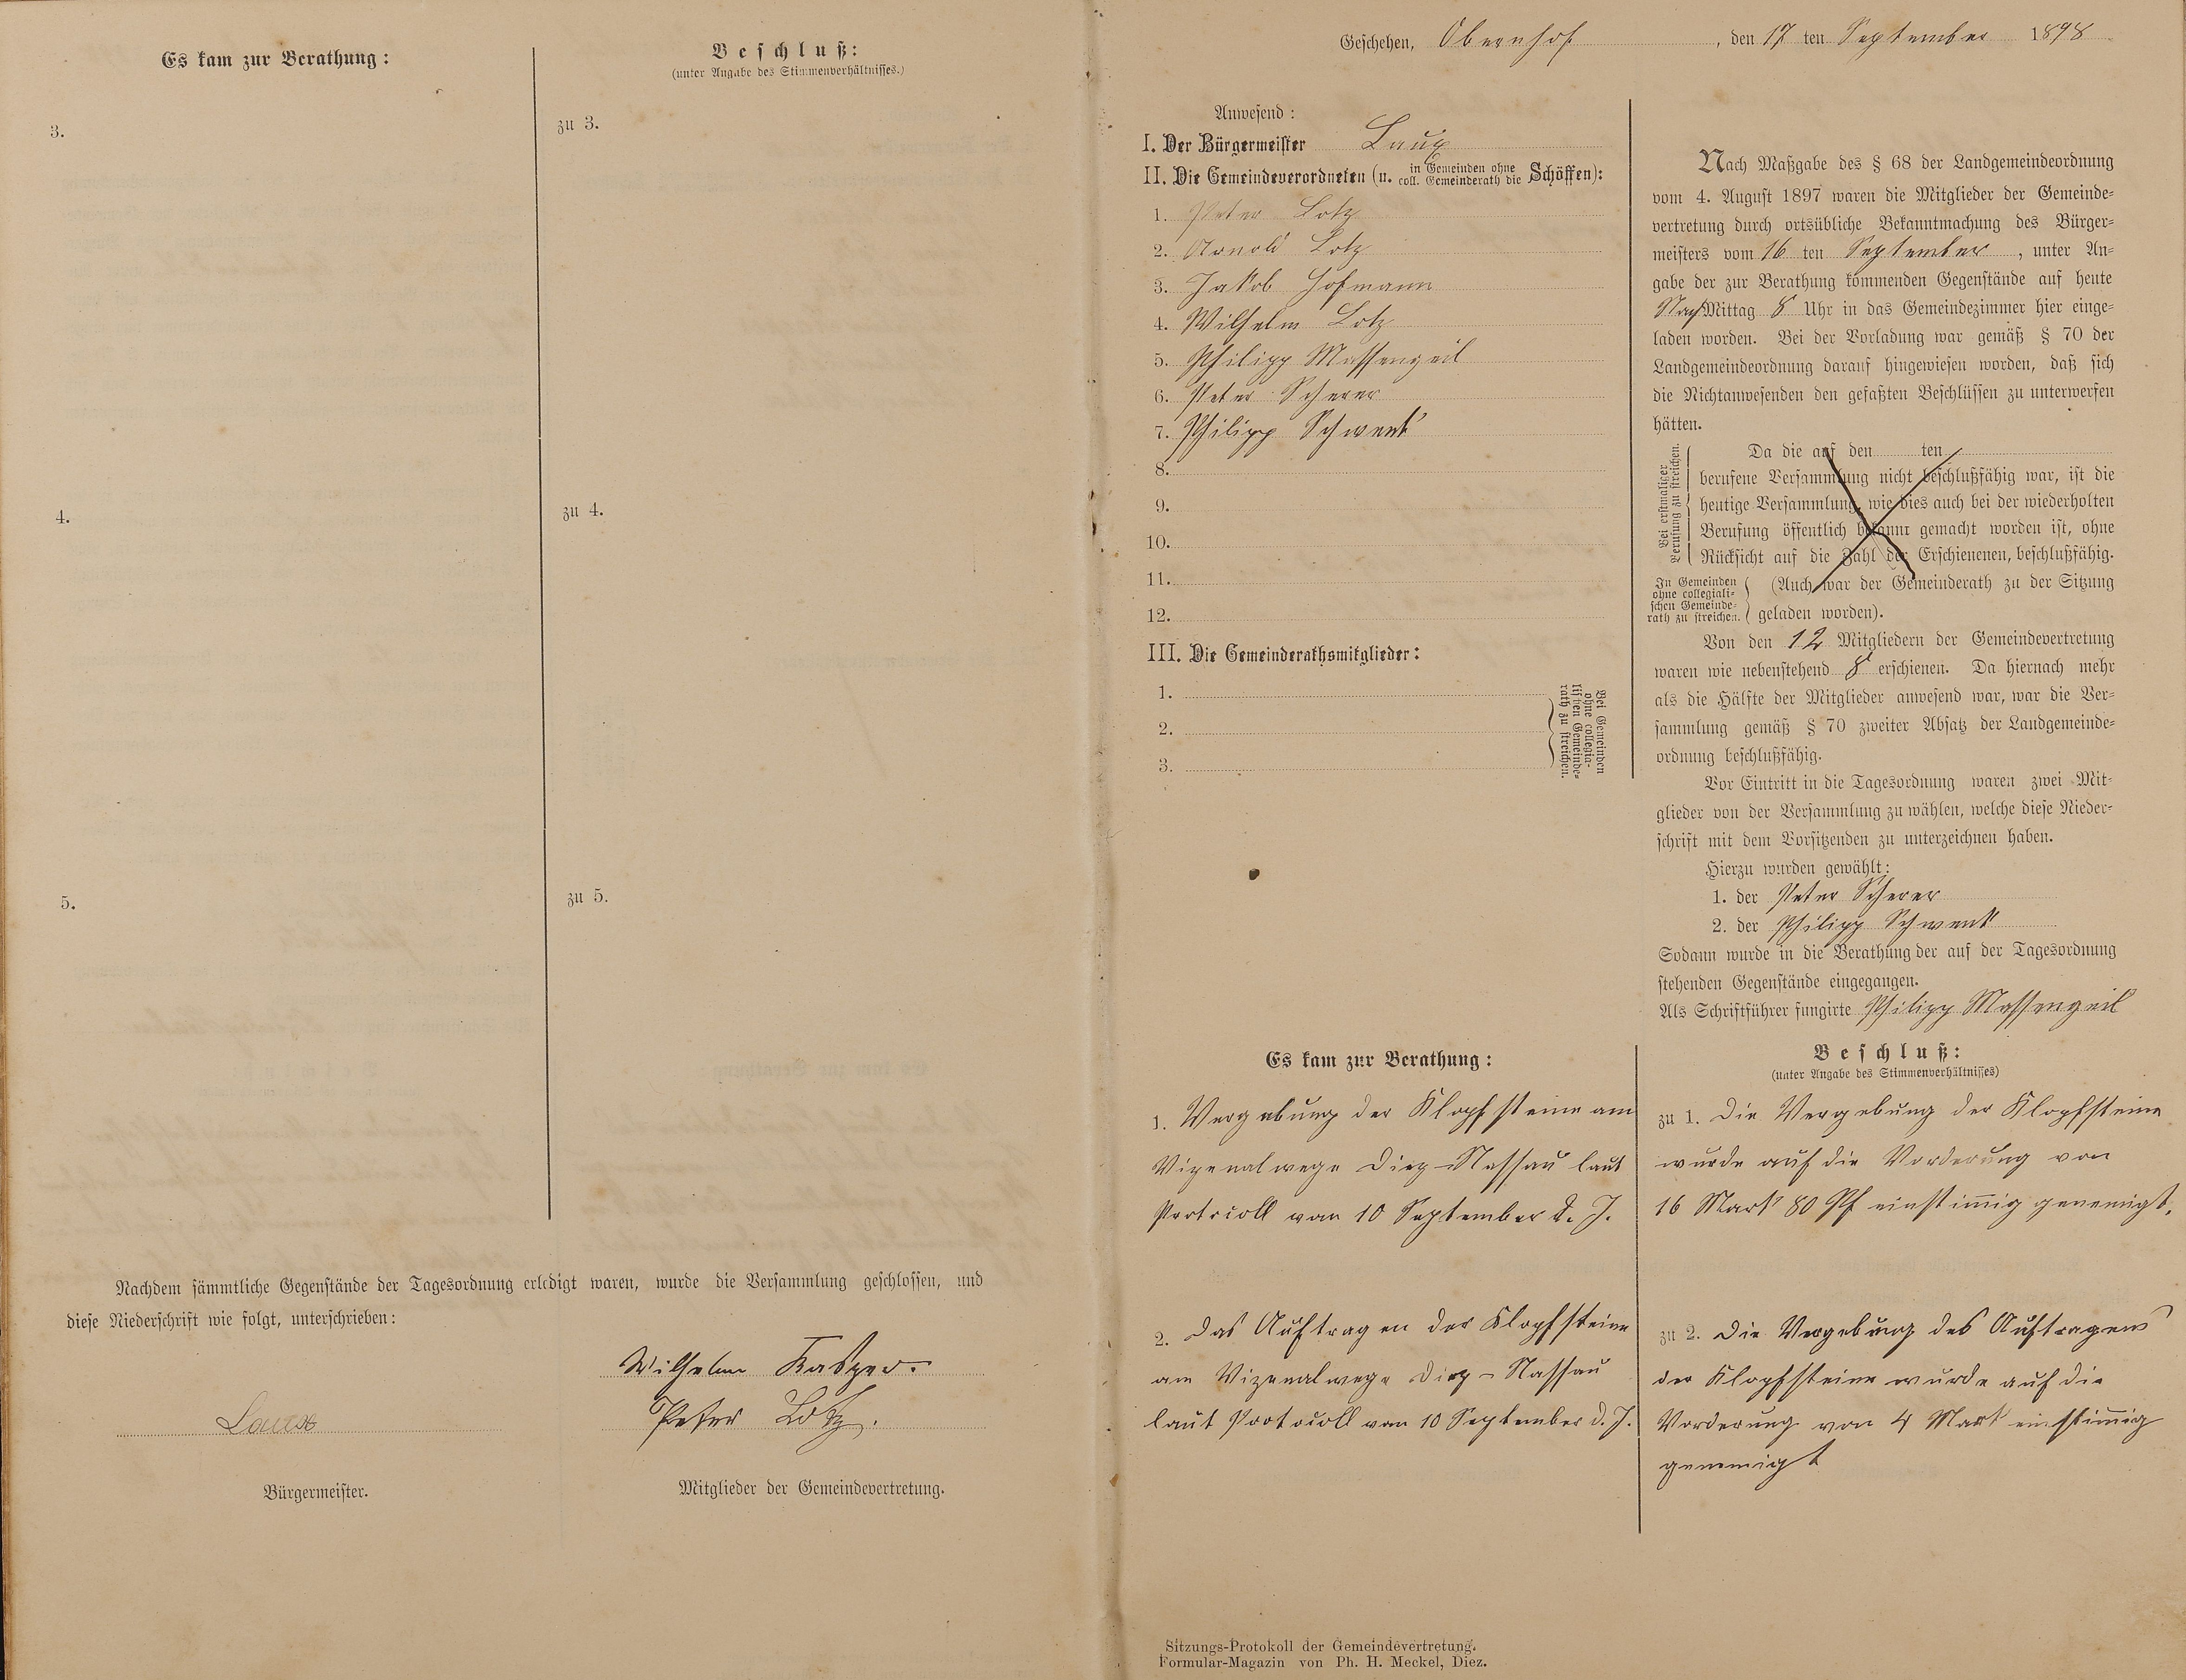 Es kam zur Berathung:
Beschluß:
(unter Angabe des Stimmenverhältnisses.)
3.
zu 3.
4.
zu 4.
5.
zu 5.
Nachdem sämmtliche Gegenstände der Tagesordnung erledigt waren, wurde die Versammlung geschlossen, und
diese Niederschrift wie folgt, unterschrieben:
Wilhelm Kasper.
Peter Lotz.
Laux
Bürgermeister.
Mitglieder der Gemeindevertretung.
Geschehen, Obernhof, den 17 ten September 1898
Anwesend:
I. Der Bürgermeister Laux
II. Die Gemeindeverordneten (u. in Gemeinden ohne coll. Gemeinderath die Schöffen):
1. Peter Lotz
2. Arnold Lotz
3. Jakob Hofmann
4. Wilhelm Lotz
5. Philipp Massengeil
6. Peter Scherer
7. Philipp Schwenk
8.
9.
10.
11.
12.
III. Die Gemeinderathsmitglieder:
1.
2.
3.
Bei Gemeinden
ohne collegia-
lischen Gemeinde-
rath zu streichen.
Nach Maßgabe des § 68 der Landgemeindeordnung
vom 4. August 1897 waren die Mitglieder der Gemeinde-
vertretung durch ortsübliche Bekanntmachung des Bürger-
meisters vom 16 ten September, unter An-
gabe der zur Berathung kommenden Gegenstände auf heute
NachMittag 8 Uhr in das Gemeindezimmer hier einge-
laden worden. Bei der Vorladung war gemäß § 70 der
Landgemeindeordnung darauf hingewiesen worden, daß sich
die Nichtanwesenden den gefaßten Beschlüssen zu unterwerfen
hätten.
Bei erstmaliger
Berufung zu streichen.
Da die auf den ten
berufene Versammlung nicht beschlußfähig war, ist die
heutige Versammlung, wie dies auch bei der wiederholten
Berufung öffentlich bekannt gemacht worden ist, ohne
Rücksicht auf die Zahl der Erschienenen, beschlußfähig.
In Gemeinden
ohne collegiali-
schen Gemeinde-
rath zu streichen.
(Auch war der Gemeinderath zu der Sitzung
geladen worden).
Von den 12 Mitgliedern der Gemeindevertretung
waren wie nebenstehend 8 erschienen. Da hiernach mehr
als die Hälfte der Mitglieder anwesend war, war die Ver-
sammlung gemäß § 70 zweiter Absatz der Landgemeinde-
ordnung beschlußfähig.
Vor Eintritt in die Tagesordnung waren zwei Mit-
glieder von der Versammlung zu wählen, welche diese Nieder-
schrift mit dem Vorsitzenden zu unterzeichnen haben.
Hierzu wurden gewählt:
1. der Peter Scherer
2. der Philipp Schwenk
Sodann wurde in die Berathung der auf der Tagesordnung
stehenden Gegenstände eingegangen.
Als Schriftführer fungirte Philipp Massengeil
Es kam zur Berathung:
1. Vergebung der Klopfsteine am
Vizenalwege Diez-Nassau laut
Protocoll vom 10 September d. J.
2. Das Auftragen der Klopfsteine
am Vizenalwege Diez-Nassau
laut Protocoll vom 10 September d. J.
Beschluß:
(unter Angabe des Stimmenverhältnisses)
zu 1. Die Vergebung der Klopfsteine
wurde auf die Vorderung von
16 Mark 80 Pf einstim̄ig genemigt.
zu 2. Die Vergebung des Auftragens
der Klopfsteine wurde auf die
Vorderung von 4 Mark einstim̄ig
genemigt
Sitzungs-Protokoll der Gemeindevertretung.
Formular-Magazin von Ph. H. Meckel, Diez.